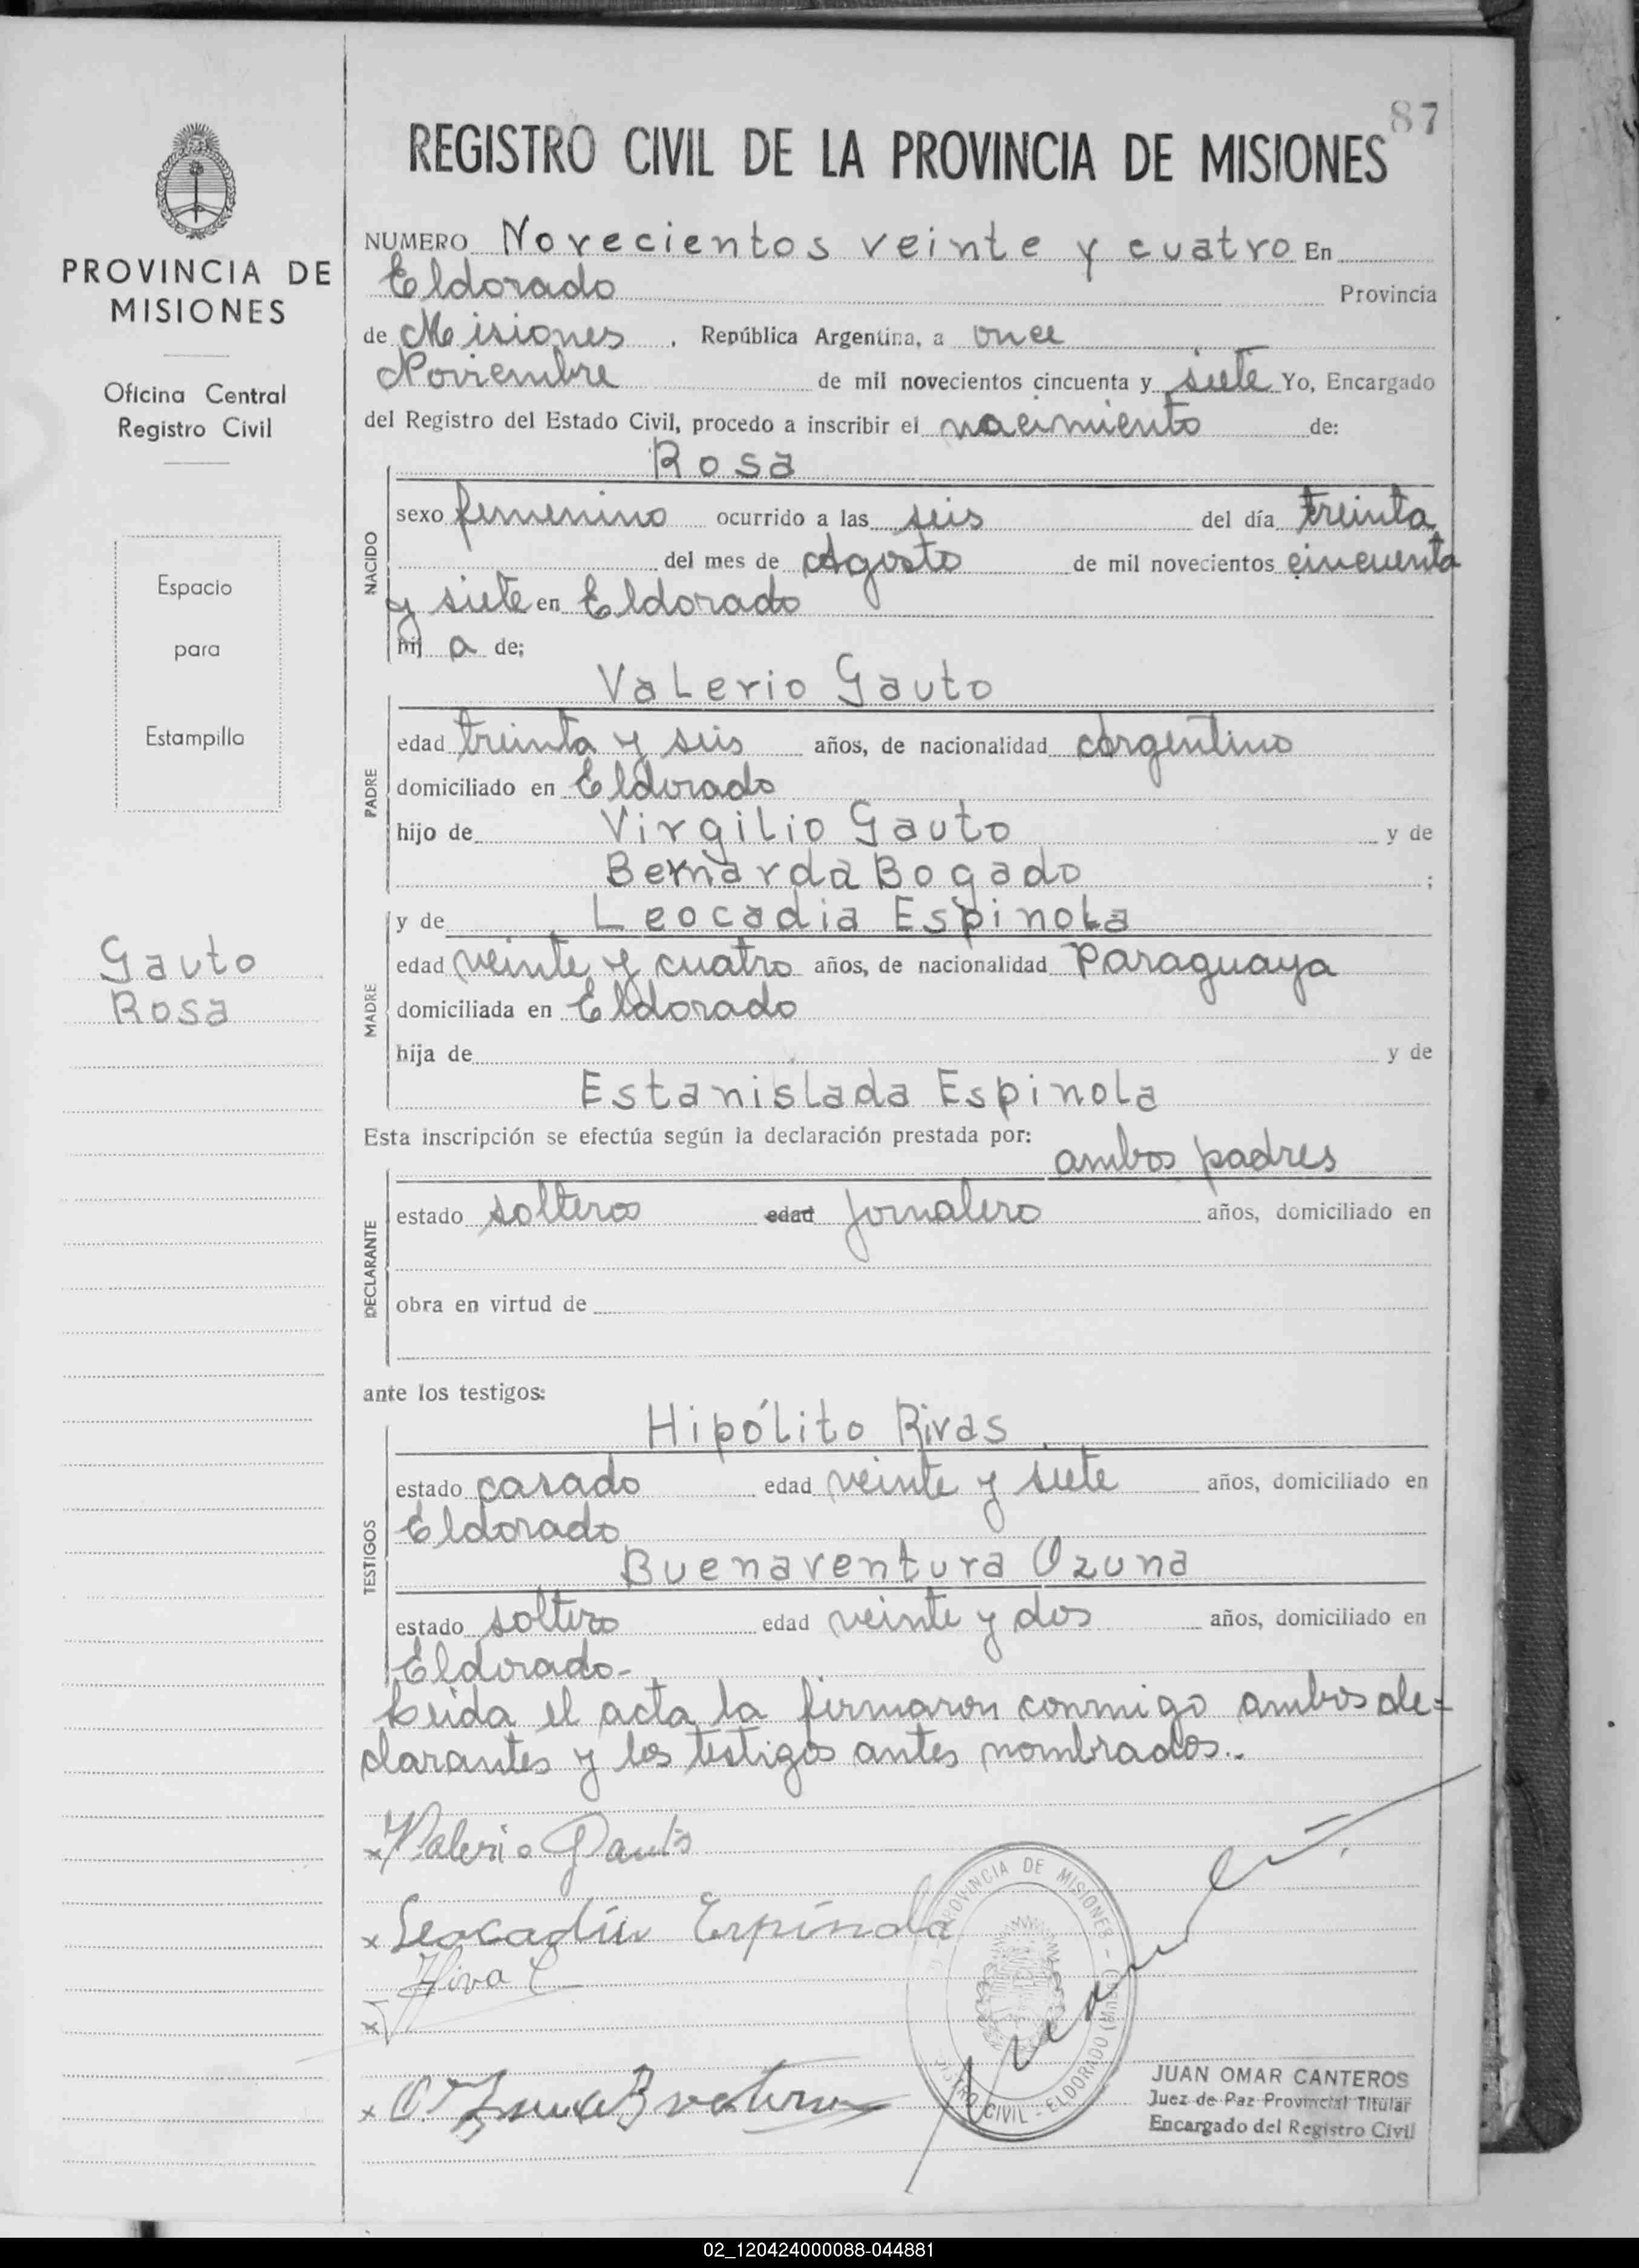 87
REGISTRO CIVIL DE LA PROVINCIA DE MISIONES
PROVINCIA DE
MISIONES
Oficina Central
Registro Civil
Espacio
para
Estampilla
Gauto
Rosa
NUMERO Novecientos veinte y cuatro En
Eldorado Provincia
de Misiones, República Argentina, a once
Noviembre de mil novecientos cincuenta y siete Yo, Encargado
del Registro del Estado Civil, procedo a inscribir el nacimiento de:
Rosa
NACIDO
sexo femenino ocurrido a las seis del día treinta
del mes de Agosto de mil novecientos cincuenta
y siete en Eldorado
hij a de;
Valerio Gauto
PADRE
edad treinta y seis años, de nacionalidad Argentino
domiciliado en Eldorado
hijo de Virgilio Gauto y de
Bernarda Bogado ;
y de Leocadia Espinola
MADRE
edad veinte y cuatro años, de nacionalidad Paraguaya
domiciliada en Eldorado
hija de y de
Estanislada Espinola
Esta inscripción se efectúa según la declaración prestada por:
ambos padres
DECLARANTE
estado solteros edad jornalero años, domiciliado en
obra en virtud de
ante los testigos:
Hipólito Rivas
TESTIGOS
estado casado edad veinte y siete años, domiciliado en
Eldorado
Buenaventura Ozuna
estado soltero edad veinte y dos años, domiciliado en
Eldorado-
Leida el acta la firmaron conmigo ambos de=
clarantes y los testigos antes nombrados..
x Valerio Gauto
x Leocadia Espinola
x
x
PROVINCIA DE MISIONES - ELDORADO (Mnes)
REGISTRO CIVIL
JUAN OMAR CANTEROS
Juez de Paz Provincial Titular
Encargado del Registro Civil
02_120424000088-044881